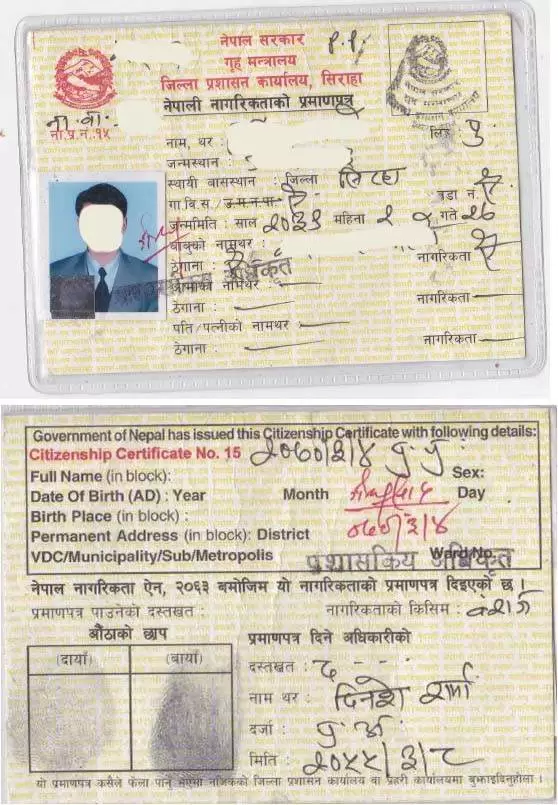 नेपाल सरकार
गृह मन्त्रालय
जिल्ला प्रशासन कार्यालय, सिराहा
नेपाली नागरिकताको प्रमाणपत्र
ना.प्र.नं. १५
लिङ्ग :
नाम, थर :
जन्मस्थान :
स्थायी बासस्थान : जिल्ला सिरहा
गा.वि.स./उ.म.न.पा. वडा नं.
जन्ममिति : साल २०३३ महिना २ गते २६
बाबुको नामथर :
ठेगाना : नागरिकता
आमाको नामथर
ठेगाना : नागरिकता
पति/पत्नीको नामथर
ठेगाना : नागरिकता
Government of Nepal has issued this Citizenship Certificate with following details:
Citizenship Certificate No. 15
Full Name (in block): Sex:
Date Of Birth (AD) : Year Month Day
Birth Place (in block) :
Permanent Address (in block): District
VDC/Municipality/Sub/Metropolis Ward No.
प्रशासकिय अधिकृत
नेपाल नागरिकता ऐन, २०६३ बमोजिम यो नागरिकताको प्रमाणपत्र दिइएको छ ।
प्रमाणपत्र पाउनेको दस्तखत : नागरिकताको किसिम : वंशज
औंठाको छाप
प्रमाणपत्र दिने अधिकारीको
(दायाँ) (बायाँ)
दस्तखत : द - - -
नाम थर : दिनेश शर्मा
दर्जा : प्र. अ.
मिति : २०५५/३/८
यो प्रमाणपत्र कसैले फेला पारे नजिकको जिल्ला प्रशासन कार्यालय वा प्रहरी कार्यालयमा बुझाइदिनुहोला ।